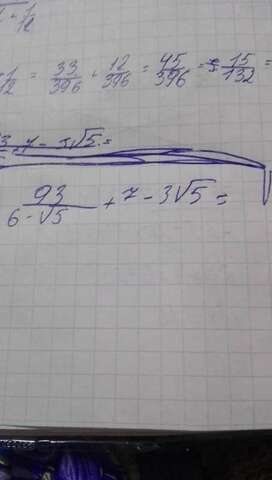 1/12
1/12 = 33/396 + 12/396 = 45/396 = 15/132 =
7 - 3√5 =
93/(6-√5) + 7 - 3√5 =